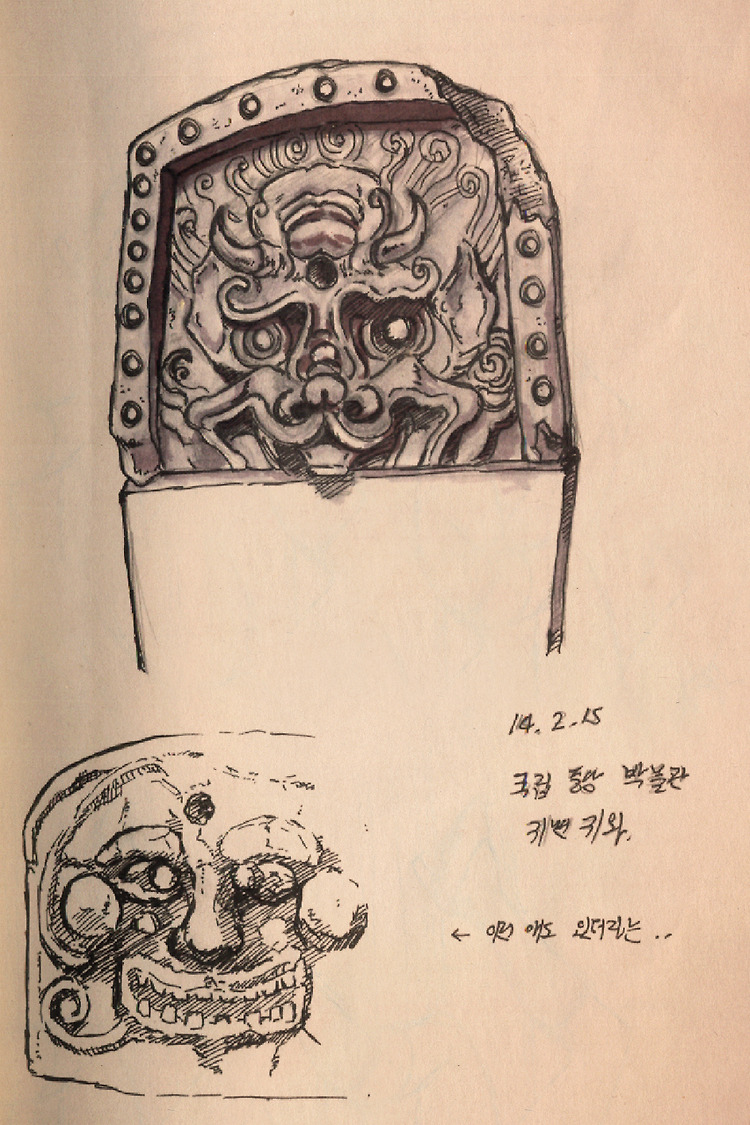 14. 2. 15
국립 중앙 박물관
귀면 기와.
← 이런 애도 있더라는 ..